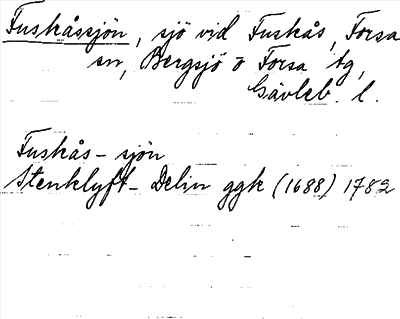 Fuskåssjön, sjö vid Fuskås, Forsa
sn, Bergsjö o Forsa tg,
Gävleb. l.
Fuskås-sjön
Stenklyft- Delin ggk (1688) 1782